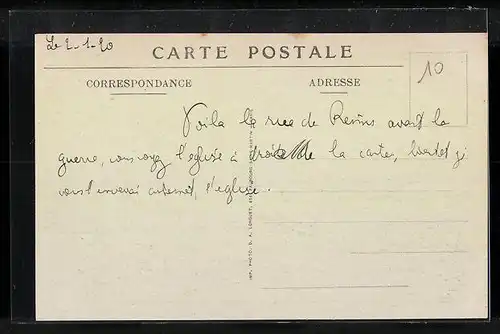 Le 2-1-20
CARTE POSTALE
10
CORRESPONDANCE
ADRESSE
Voila la rue de Reims avant la
guerre, vous voyez l'eglise à droite de la carte, bientot je
vous enverrai l'eglise.
IMP. PHOTO. D. A. LONGUET,